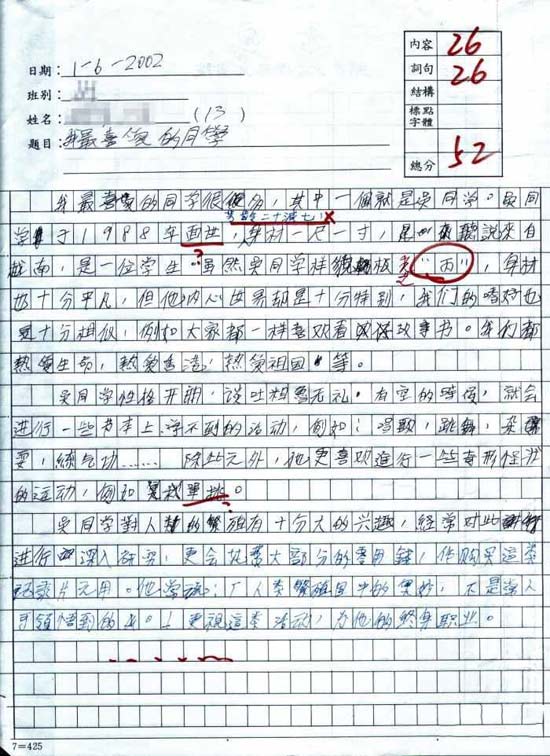 日期: 1-6-2002
班別:
姓名: (13)
題目: 我最喜愛的同學
內容 26
詞句 26
結構
標點
字體
總分 52
我最喜愛的同學很多，其中一個就是吳同學。吳同
學於1988年面世，身材一尺一寸，說來自
越南，是一位學生。雖然吳同學樣板"丙"，身材
也十分平凡，但他內心世界却是十分特別，我們的嗜好也
十分相似，例如大家都一样喜欢看故事书。我们都
熱愛生命，熱愛香港，熱愛祖國等。
吳同學性格开朗，談吐粗魯无礼。有空的時候，就会
進行一些书本上学不到的活动，例如：唱歌，跳舞，杂
耍，練气功……除此之外，他更喜欢進行一些奇形怪狀
的运动，例如單挑。
吳同學對人類的繁殖有十分大的兴趣，經常对此
進行深入研究，更会花費大部分的零用錢，作购买這类
之用。他常說：「人类繁殖图中的奥妙，不是常人
可領悟到的。」更視這类活动，为他的終身职业。
7=425